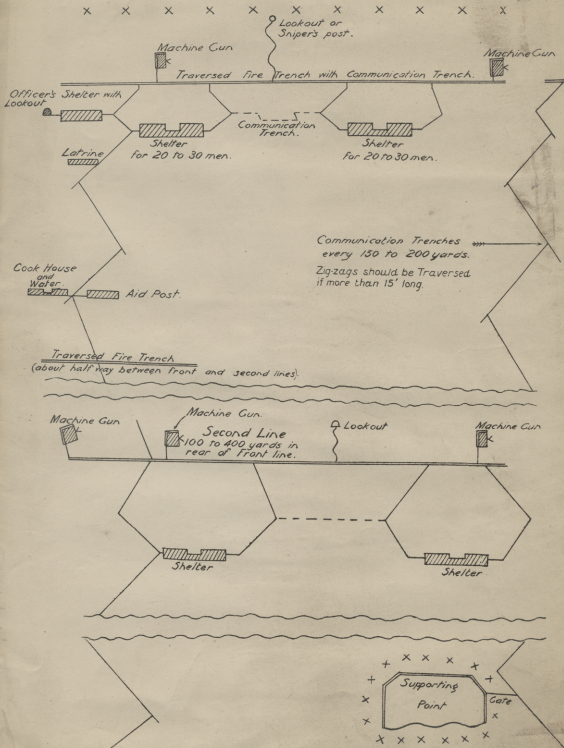 Lookout or
Sniper's post.
Machine Gun
Machine Gun
Traversed Fire Trench with Communication Trench.
Officer's Shelter with
Lookout
Communication
Trench.
Shelter
For 20 to 30 men.
Shelter
For 20 to 30 men.
Latrine
Communication Trenches
every 150 to 200 yards.
Zig-zags should be Traversed
if more than 15' long.
Cook House
and
Water
Aid Post
Traversed Fire Trench
(about half way between front and second lines).
Machine Gun
Machine Gun.
Second Line
100 to 400 yards in
rear of Front line.
Lookout
Machine Gun
Shelter
Shelter
Supporting
Point
Gate